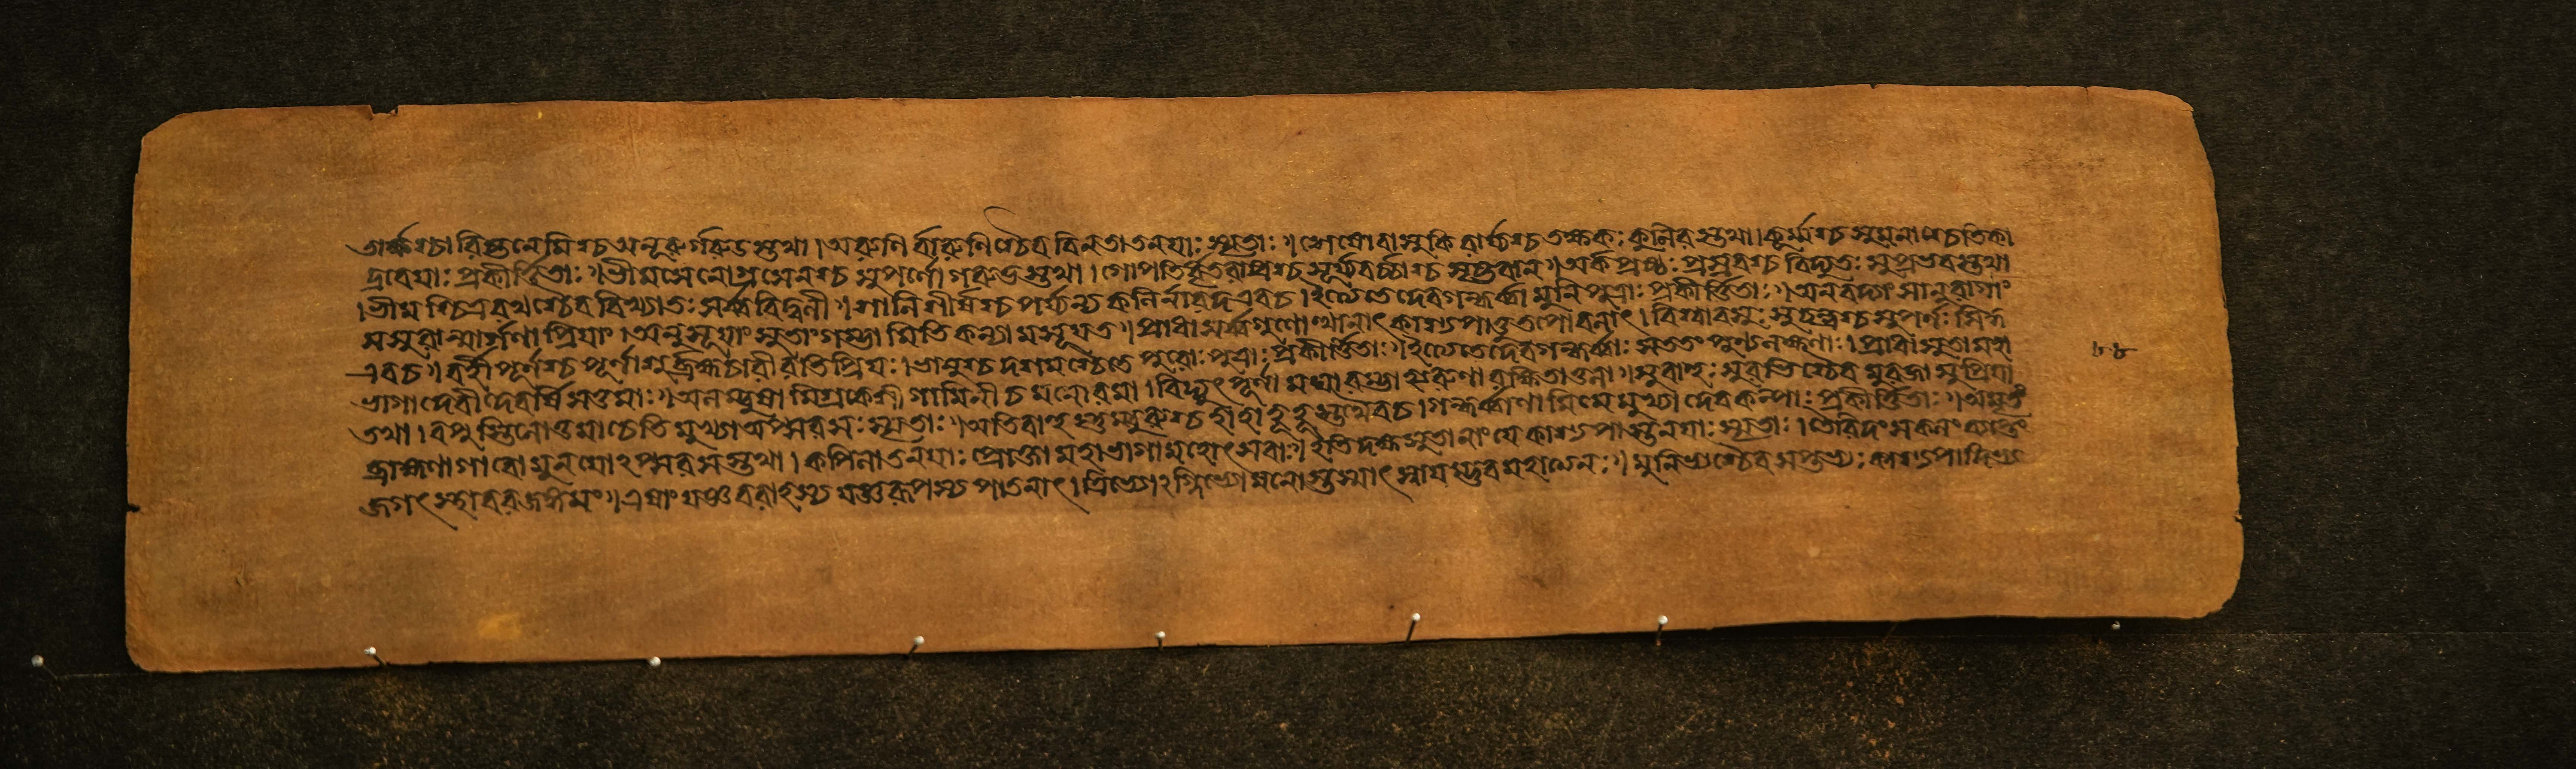 তার্ক্ষশ্চারিষ্টনেমিশ্চঅনূরুর্গরুডস্তথা।অরুণির্বারুণিশ্চৈববিনতাতনয়াঃস্মৃতাঃ॥শেষোবাসুকিরার্যশ্চতক্ষকঃকুলিরস্তথা।কূর্ম্মশ্চসুমনাশ্চেতিকা
দ্রবেয়াঃপ্রকীর্ত্তিতাঃ॥ভীমসেনোগ্রসেনশ্চসুপর্ণোগরুডস্তথা।গোপতির্ধৃতরাষ্ট্রশ্চসূর্য্যবর্চ্চাশ্চ অর্কপ্রষ্ঠঃ বিদ্যুতঃ
।ভীমশ্চিত্ররথশ্চৈববিখ্যাতঃসর্ব্ববিদ্বলী॥শালিশীর্ষশ্চপর্য্যন্যকলির্নারদএবচ।ইত্যেতেদেবগন্ধর্ব্বামুনিপুত্রাঃপ্রকীর্ত্তিতাঃ॥অনবদ্যাসানুরাগাং
মসুরান্মার্গণাপ্রিয়াং।অনুসূয়াংসুতাং কন্যামসূয়ত॥প্রাধাসর্ব্বগুণো কাশ্যপাত্তুতপোবলাৎ।বিশ্বাবসুঃসুচন্দ্রশ্চসুপর্ণঃসিদ্ধ
এবচ॥বর্হীপূর্ণশ্চপূর্ণাশুর্ব্রহ্মচারীরতিপ্রিয়ঃ।ভানুশ্চদশমশ্চৈতে পুত্রাঃপ্রকীর্ত্তিতাঃ॥ইত্যেতেদেবগন্ধর্ব্বাঃসততংপুণ্যলক্ষণাঃ।প্রাধাসুতামহা ৮৮
ভাগাদেবীদেবর্ষিসত্তমাঃ॥অলম্বুষামিশ্রকেশীগামিনীচমনোরমা।বিদ্যুৎপূর্ণা রক্ষিতা সুবাহুঃসুরভিশ্চৈবসুরজাসুপ্রিয়া
তথা।বপু মুখ্যাঅপ্সরসঃস্মৃতাঃ॥অতিবাহু হাহাহূহূস্তথৈবচ।গন্ধর্ব্বাণামিমেমুখ্যাদেবকন্যাঃপ্রকীর্ত্তিতাঃ॥অমৃতং
ব্রাহ্মণাগাবোমুনয়োঽপ্সরসস্তথা।কপিলাতনয়াঃপ্রোক্তামহাভাগামহোৎসবাঃ॥ইতিদক্ষসুতানাংযেকাশ্যপাস্তনয়াঃস্মৃতাঃ।তৈরিদংসকলংব্যাপ্তং
জগৎস্থাবরজঙ্গমং॥এষাংযজ্ঞবরাহস্যযজ্ঞরূপস্যপাতনাৎ।ত্রিভ্যোঽগ্নিভ্যো মুনিভ্যশ্চৈবসপ্তভ্যঃকাশ্যপাদিভ্য